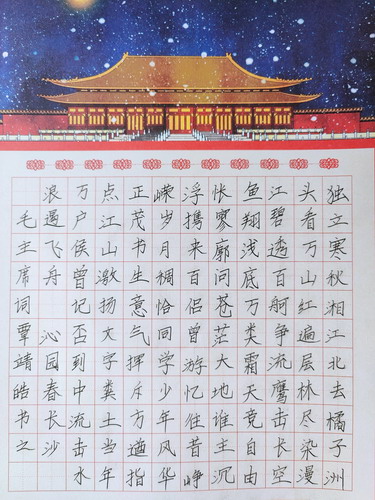 独立寒秋湘江北去橘子洲
头看万山红遍层林尽染漫
江碧透百舸争流鹰击长空
鱼翔浅底万类霜天竞自由
怅寥廓问苍茫大地谁主沉
浮携来百侣曾游忆往昔峥
嵘岁月稠恰同学少年风华
正茂书生意气挥斥方遒指
点江山激扬文字粪土当年
万户侯曾记否到中流击水
浪遏飞舟 沁园春长沙
毛主席词覃靖皓书之